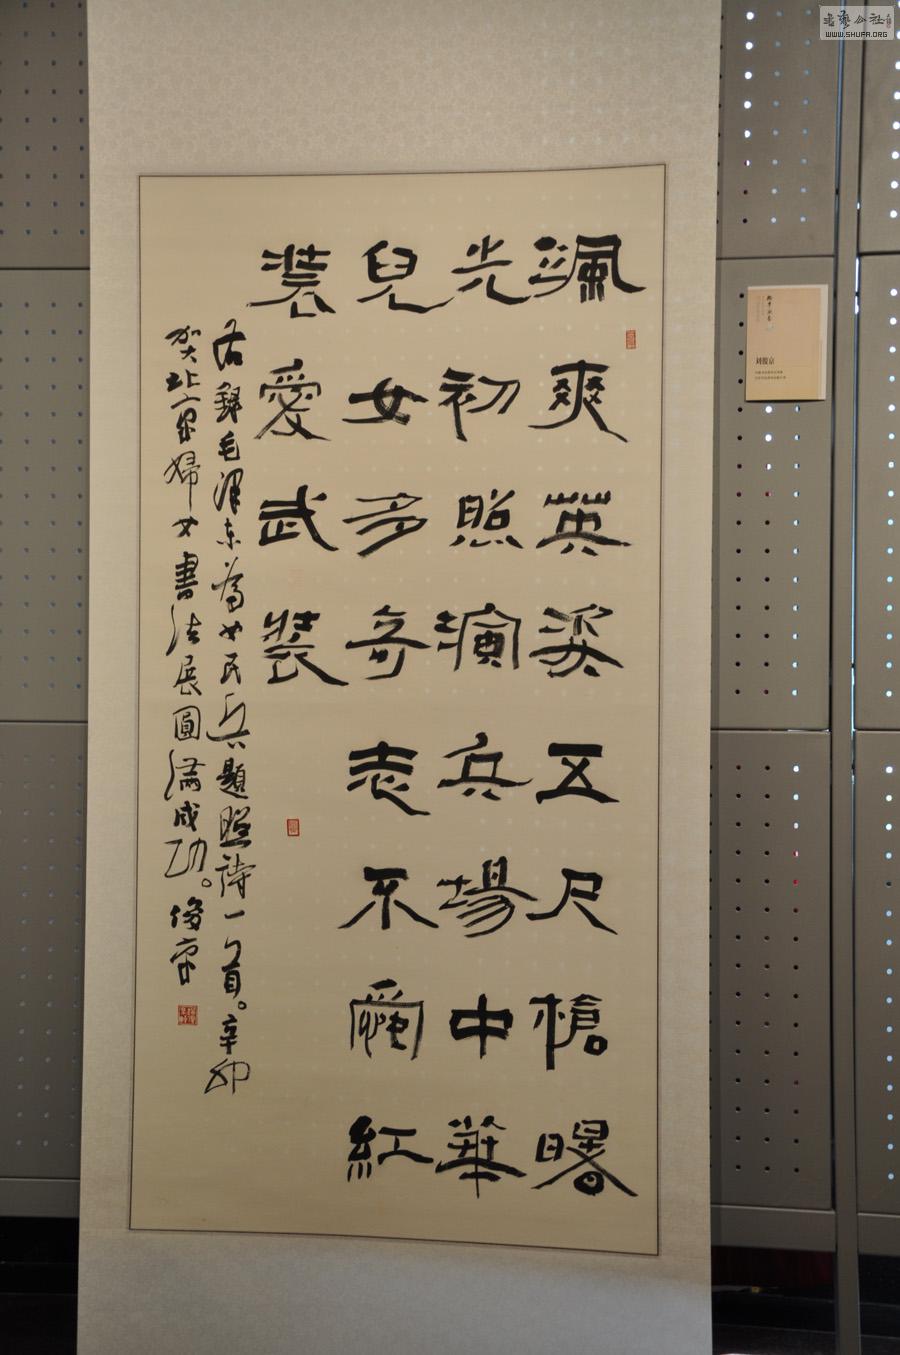 颯爽英姿五尺槍曙
光初照演兵場中華
兒女多奇志不愛紅
裝愛武裝
右錄毛澤東為女民兵題照詩一首。辛卯
賀北京婦女書法展圓滿成功。俊京
刘俊京
WWW.SHUFA.ORG